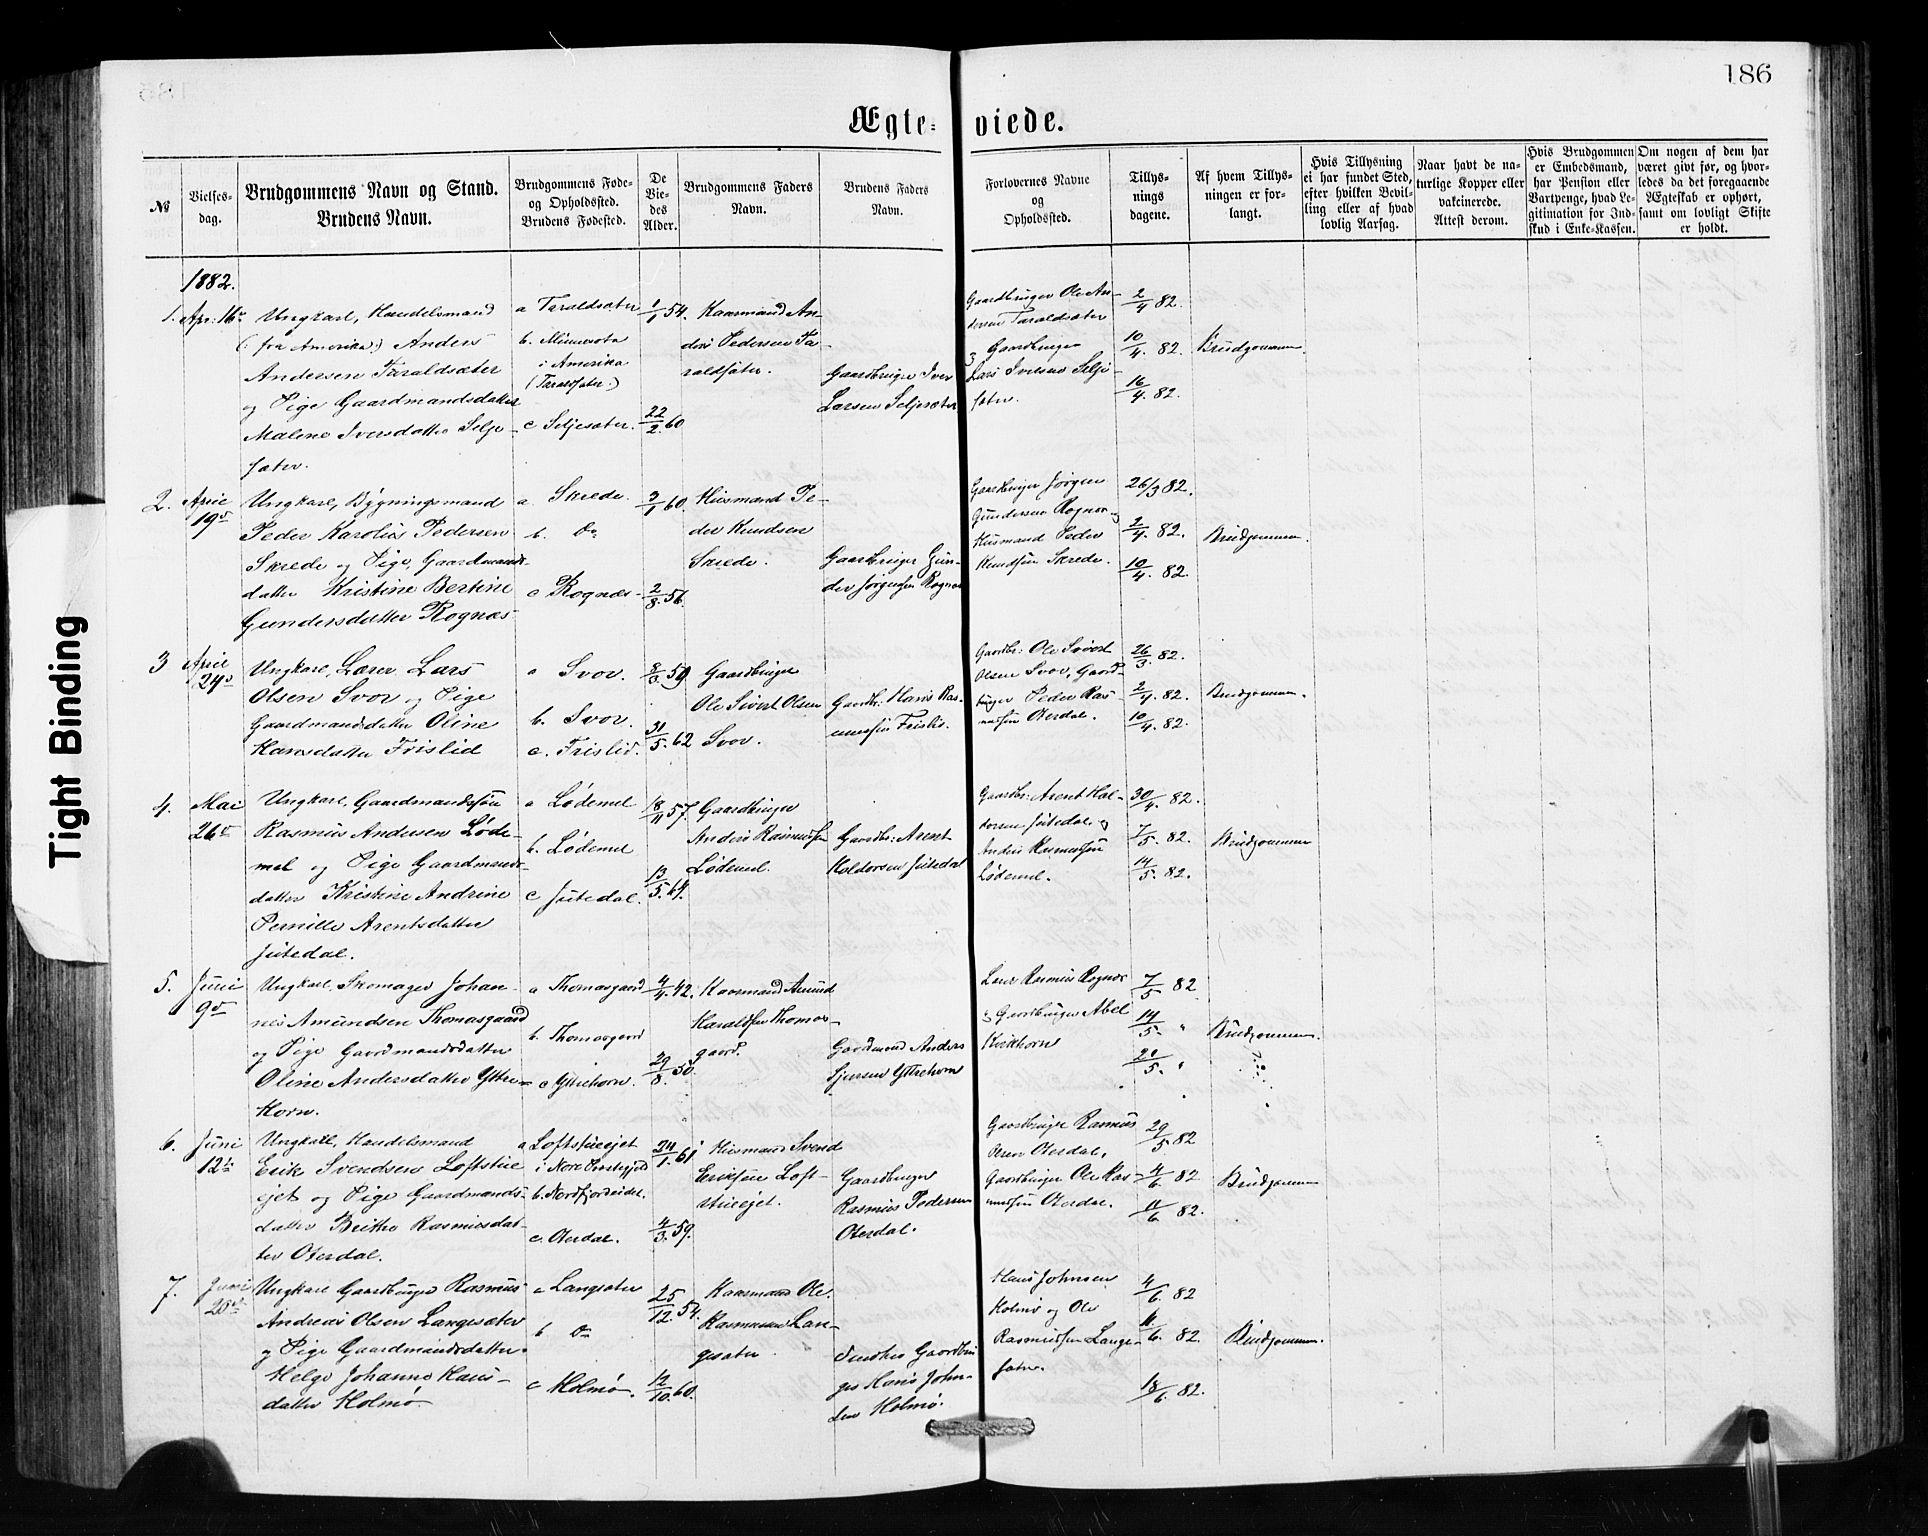 186
Ægte-
viede.
№
Vielses-
dag.
Brudgommens Navn og Stand.
Brudens Navn.
Brudgommens Føde-
og Opholdssted.
Brudens Fødested.
De
Vie-
des
Alder.
Brudgommens Faders
Navn.
Brudens Faders
Navn.
Forlovernes Navne
og
Opholdssted.
Tillys-
nings
dagene.
Af hvem Tillys-
ningen er for-
langt.
Hvis Tillysning
ei har fundet Sted,
efter hvilken Bevil-
ling eller af hvad
lovlig Aarsag.
Naar havt de na-
turlige Kopper eller
vakcinerede.
Attest derom.
Hvis Brudgommen
er Embedsmand,
har Pension eller
Vartpenge, hvad Le-
gitimation for Ind-
skud i Enke-Kassen.
Om nogen af dem har
været givt før, og hvor-
ledes da det foregaaende
Ægteskab er ophørt,
samt om lovligt Skifte
er holdt.
1882.
1.
Apr: 16de
Ungkarl, Handelsmand
(: fra Amerika:) Anders
Andersen Taraldsæter
og Pige Gaardmandsdatter
Malene Iversdatter Selje-
sæter.
a Taraldsæter
b. Minnesota
i Amerika
(Taraldsæter.)
c Seljesæter.
1/1 54.
22/2 60
Kaarmand An-
ders Pedersen Ta-
raldsæter.
Gaardbruger Iver
Larsen Seljesæter
Gaardbruger Ole An-
dersen Taraldsæter
og Gaardbruger
Lars Iversen Selje-
sæter.
2/4 82.
10/4. 82.
16/4. 82.
Brudgommen
2.
April
19de
Ungkarl, Bygningsmand
Peder Karolius Pedersen
Skrede og Pige, Gaardmands-
datter Kristine Bertine
Gundersdatter Rognæs
a Skrede.
b. Do
c Rognæs
3/1 60.
2/8. 56.
Husmand Pe-
der Knudsen
Skrede.
Gaardbruger Gun-
der Jørgensen Rognæs
Gaardbruger Jørgen
Gundersen Rognæs og
Husmand Peder
Knudsen Skrede.
26/3 82.
2/4. 82.
10/4. 82.
Brudgommen.
3
April
24de
Ungkarl, Lærer Lars
Olsen Svor og Pige
Gaardmandsdatter Oline
Hansdatter Frislid
a Svor.
b. Svor.
c. Frislid.
8/3. 59
31/5. 62
Gaardbruger
Ole Sivert Olsen
Svor.
Gaardbr: Hans Ras-
mussen Frislid.
Gaardbr: Ole Sivert
Olsen Svor, Gaard-
bruger Peder Ras-
mussen Oterdal.
26/3. 82.
2/4. 82.
10/4. 82.
Brudgommen.
4.
Mai
26de
Ungkarl, Gaardmandssøn
Rasmus Andersen Løde-
mel og Pige Gaardmands-
datter Kristine Andrine
Pernille Arentsdatter
Jutedal.
a Lødemel
b. Lødemel
c Jutedal.
18/11 57.
13/5. 64.
Gaardbruger
Anders Rasmussen
Lødemel.
Gaardbr: Arent
Koldorsen Jutedal
Gaardbr: Arent Hal-
dorsen Jutedal. og
Anders Rasmussen
Lødemel.
30/4. 82.
7/5. 82.
14/5. 82.
Brudgommen
5.
Juni
9de
Ungkarl, Skomager Johan-
nes Amundsen Thomasgaard
og Pige Gaardmandsdatter
Oline Andersdatter Yttre-
horn.
a Thomasgaard
b. Thomasgaard
c Yttrehorn.
4/4. 42.
29/8. 50.
Kaarmand Amund
Haraldsen Thomas-
gaard.
Gaardmand Anders
Sjursen Yttrehorn
Lærer Rasmus Rognæs
og Gaardbruger Abel
Kvithorn
7/5 82.
14/5. "
21/5. "
Brudgommen.
6.
Juni
12te
Ungkarl, Handelsmand
Erik Svendsen Loftstue
ejet og Pige Gaardmands-
datter Brithe Rasmusdat-
ter Oterdal.
a Loftstueejet
b. Nordfjordeidet.
c. Oterdal.
24/1. 61
4/3. 59.
Husmand Svend
Eriksen Loft-
stueejet.
Gaardbruger
Rasmus Pedersen
Oterdal.
Gaardbruger Rasmus
Olsen Oterdal,
Gaardbruger Ole Ras-
mussen Oterdal.
29/5 82
4/6 82
11/6. 82.
Brudgommen
7.
Juni
20de
Ungkarl Gaardbruger Rasmus
Andreas Olsen Langesæter
og Pige Gaardmandsdatter
Helge Johanne Hans-
datter Holmø.
a Langesæter
b Do
c Holmø.
25/12. 54.
12/10. 60.
Kaarmand Ole
Rasmussen Lan-
gesæter.
Gaardbru-
ger Hans John-
sen Holmø.
Hans Johnsen
Holmø og Ole
Rasmussen Lange-
sæter.
4/6. 82
11/6. 82.
18/6. 82.
Brudgommen.
Tight Binding